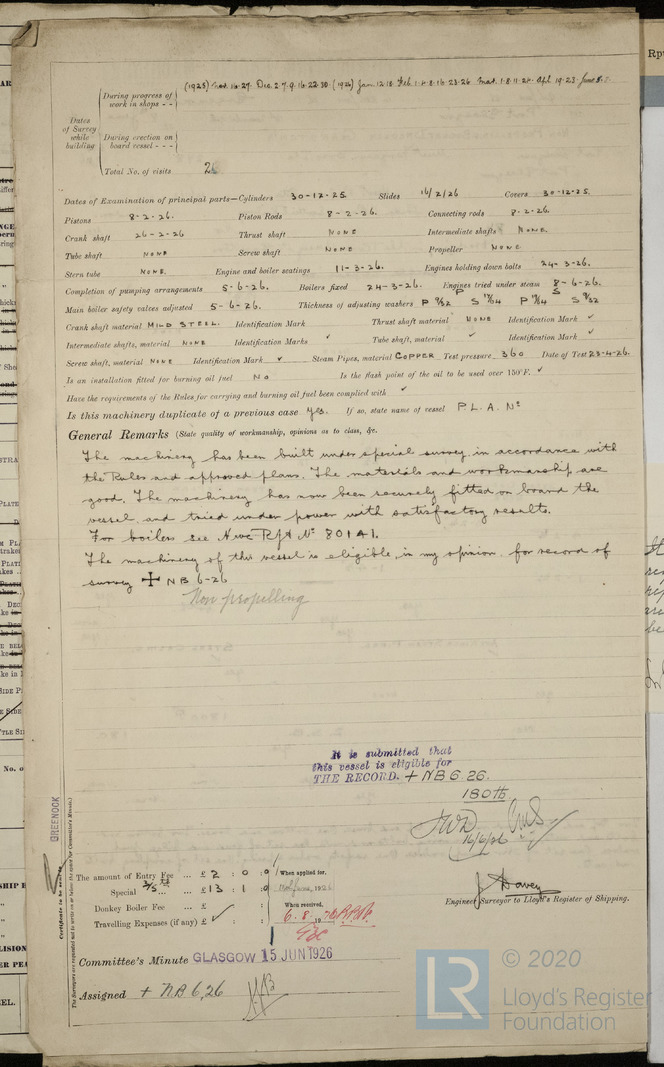 (1925) Nov. 16-27. Dec. 2.7.9.16.22.30 (1926) Jan. 12.18. Feb 1.4.8.16.23.26 Mar. 1.8.11.24. Apl 19.23. June 5.8.
During progress of
work in shops - -
Dates
of Survey
while
building
During erection on
board vessel - - -
Total No. of visits
Dates of Examination of principal parts—Cylinders 30-12-25. Slides 16/2/26 Covers 30-12-25.
Pistons 8-2-26. Piston Rods 8-2-26. Connecting rods 8-2-26.
Crank shaft 26-2-26 Thrust shaft NONE Intermediate shafts NONE.
Tube shaft NONE Screw shaft NONE Propeller NONE.
Stern tube NONE. Engine and boiler seatings 11-3-26. Engines holding down bolts 24-3-26.
Completion of pumping arrangements 5-6-26. Boilers fixed 24-3-26. Engines tried under steam 8-6-26.
Main boiler safety valves adjusted 5-6-26. Thickness of adjusting washers P S P S
Crank shaft material MILD STEEL. Identification Mark Thrust shaft material NONE Identification Mark ✓
Intermediate shafts, material NONE Identification Marks ✓ Tube shaft, material ✓ Identification Mark ✓
Screw shaft, material NONE Identification Mark ✓ Steam Pipes, material COPPER Test pressure 360 Date of Test 23-4-26.
Is an installation fitted for burning oil fuel NO Is the flash point of the oil to be used over 150°F. ✓
Have the requirements of the Rules for carrying and burning oil fuel been complied with ✓
Is this machinery duplicate of a previous case Yes. If so, state name of vessel P.L.A. No
General Remarks (State quality of workmanship, opinions as to class, &c.
The machinery has been built under special survey in accordance with
the Rules and approved plans. The materials and workmanship are
good. The machinery has now been securely fitted on board the
vessel, and tried under power with satisfactory results.
For boilers see Nwc Rpt No 80141.
The machinery of this vessel is eligible, in my opinion, for record of
survey + NB 6-26
Non propelling
It is submitted that
this vessel is eligible for
THE RECORD. + NB 6.26.
180 lb
16/6/26
GREENOCK
Certificate to be sent to
The Surveyors are requested not to write on or below the space for Committee's Minute.
The amount of Entry Fee ... £ 2 : 0 : 0 When applied for.
Special ... £ 13 : 1 : 0 1926
Donkey Boiler Fee ... £ : : When received.
Travelling Expenses (if any) £ ✓ : : 6.8.
J. Davey
Engineer Surveyor to Lloyd's Register of Shipping.
Committee's Minute GLASGOW 15 JUN 1926
Assigned + NB 6,26
LR © 2020
Lloyd's Register
Foundation